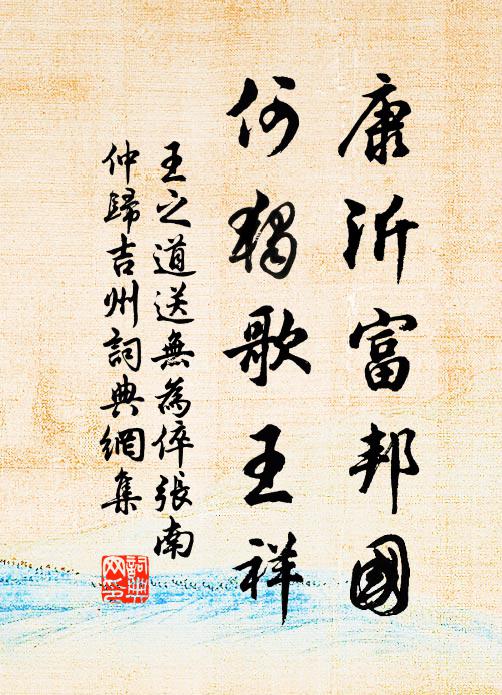 康沂富邦國
何獨歌王祥
王之道送無為倅張南
仲歸吉州詞典網集